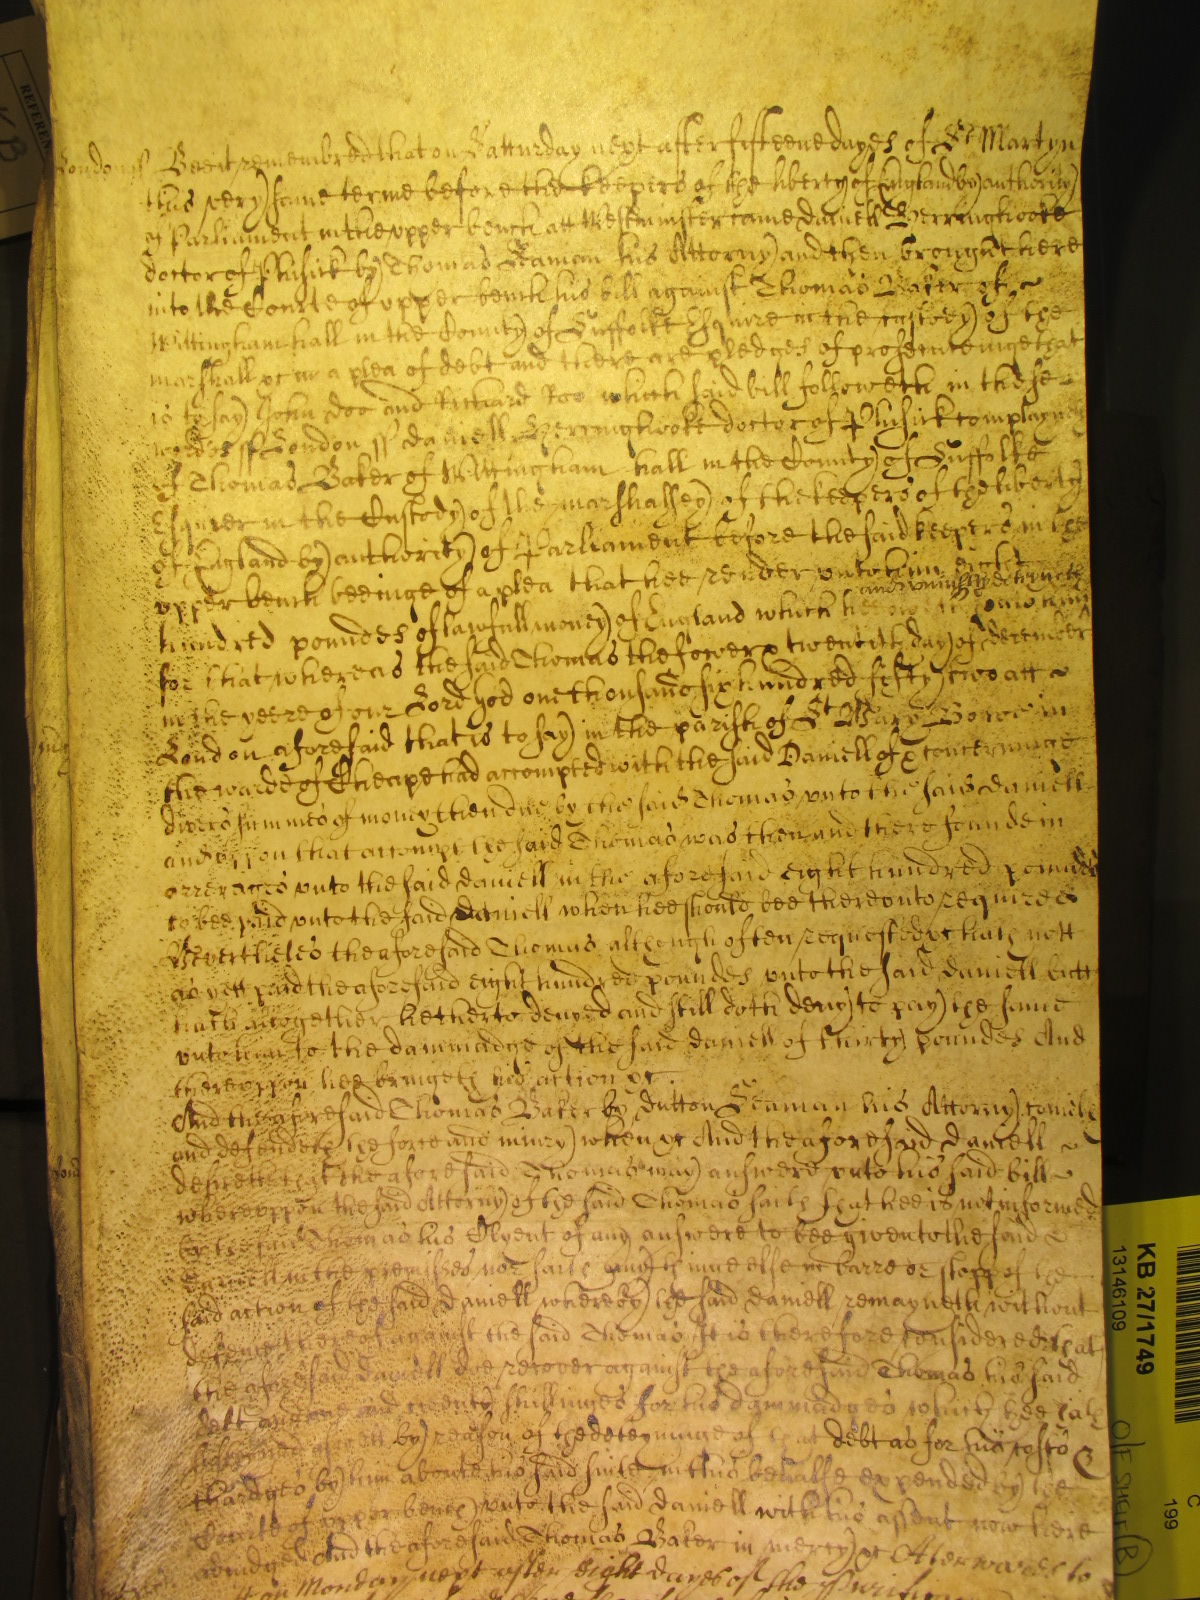 London ss Bee it remembred that on Satturday next after fifteene dayes of St Martyn
this very same terme before the keepers of the liberty of England by authority
of Parliament in the upper bench att Westminster came Daniell Herringhooke
doctor of Phisick by Thomas Seaman his Attorny and then brought here
into the Courte of upper bench his bill against Thomas Baker of
Wittingham hall in the County of Suffolke Esquire in the custody of the
marshall &c in a plea of debt and there are pledges of prosecuteinge that
is to say John Doo and Richard Roo which said bill followeth in these
wordes ss London ss Daniell Herringhooke doctor of Phisick complayneth
of Thomas Baker of Wittingham hall in the County of Suffolke
Esquier in the Custody of the marshalsey of the keepers of the liberty
of England by authority of Parliament before the said keepers in the
upper bench beeinge of a plea that hee render unto him eight
and uniustly deteyneth
hundred poundes of lawfull money of England which hee oweth unto him
for that whereas the said Thomas the fower & twentith day of december
in the yeere of our Lord God one thousand six hundred fifty two att
London aforesaid that is to say in the parish of St Mary Bowe in
the warde of Cheape had accompted with the said Daniell of & concerninge
divers summes of money then due by the said Thomas unto the said Daniell
and uppon that accompt the said Thomas was then and there founde in
arrerages unto the said Daniell in the aforesaid eight hundred poundes
to bee paid unto the said Daniell when hee should bee thereunto required
Neverthelesse the aforesaid Thomas although often requested &c hath nott
as yett paid the aforesaid eight hundred poundes unto the said Daniell butt
hath altogether hetherto denyed and still doth deny to pay the same
unto him to the dammadge of the said Daniell of thirty poundes And
thereuppon hee bringeth his action &c.
And the aforesaid Thomas Baker by Dutton Seaman his Attorny cometh
and defendeth the force and iniury when &c And the aforesaid Daniell
desireth that the aforesaid Thomas may answere unto his said bill
whereuppon the said Attorny of the said Thomas saith that hee is not informed
by the said Thomas his Clyent of any answere to bee given to the said
Daniell in the premisses nor saith any thinge else in barre or stopp of the
said action of the said Daniell whereby the said Daniell remayneth without
defence thereof against the said Thomas It is therefore considered that
the aforesaid Daniell doe recover against the aforesaid Thomas his said
debt and and twenty shillinges for his dammadges which hee hath
susteyned aswell by reason of the deteyninge of that debt as for his costs &
chardges by him aboute his said suite in this behalfe expended by the
Courte of upper bench unto the said Daniell with his assent now here
adiudged And the aforesaid Thomas Baker in mercy &c Afterwardes to
on Monday next after Eight dayes of the
KB 27/1749
13146109
C
199